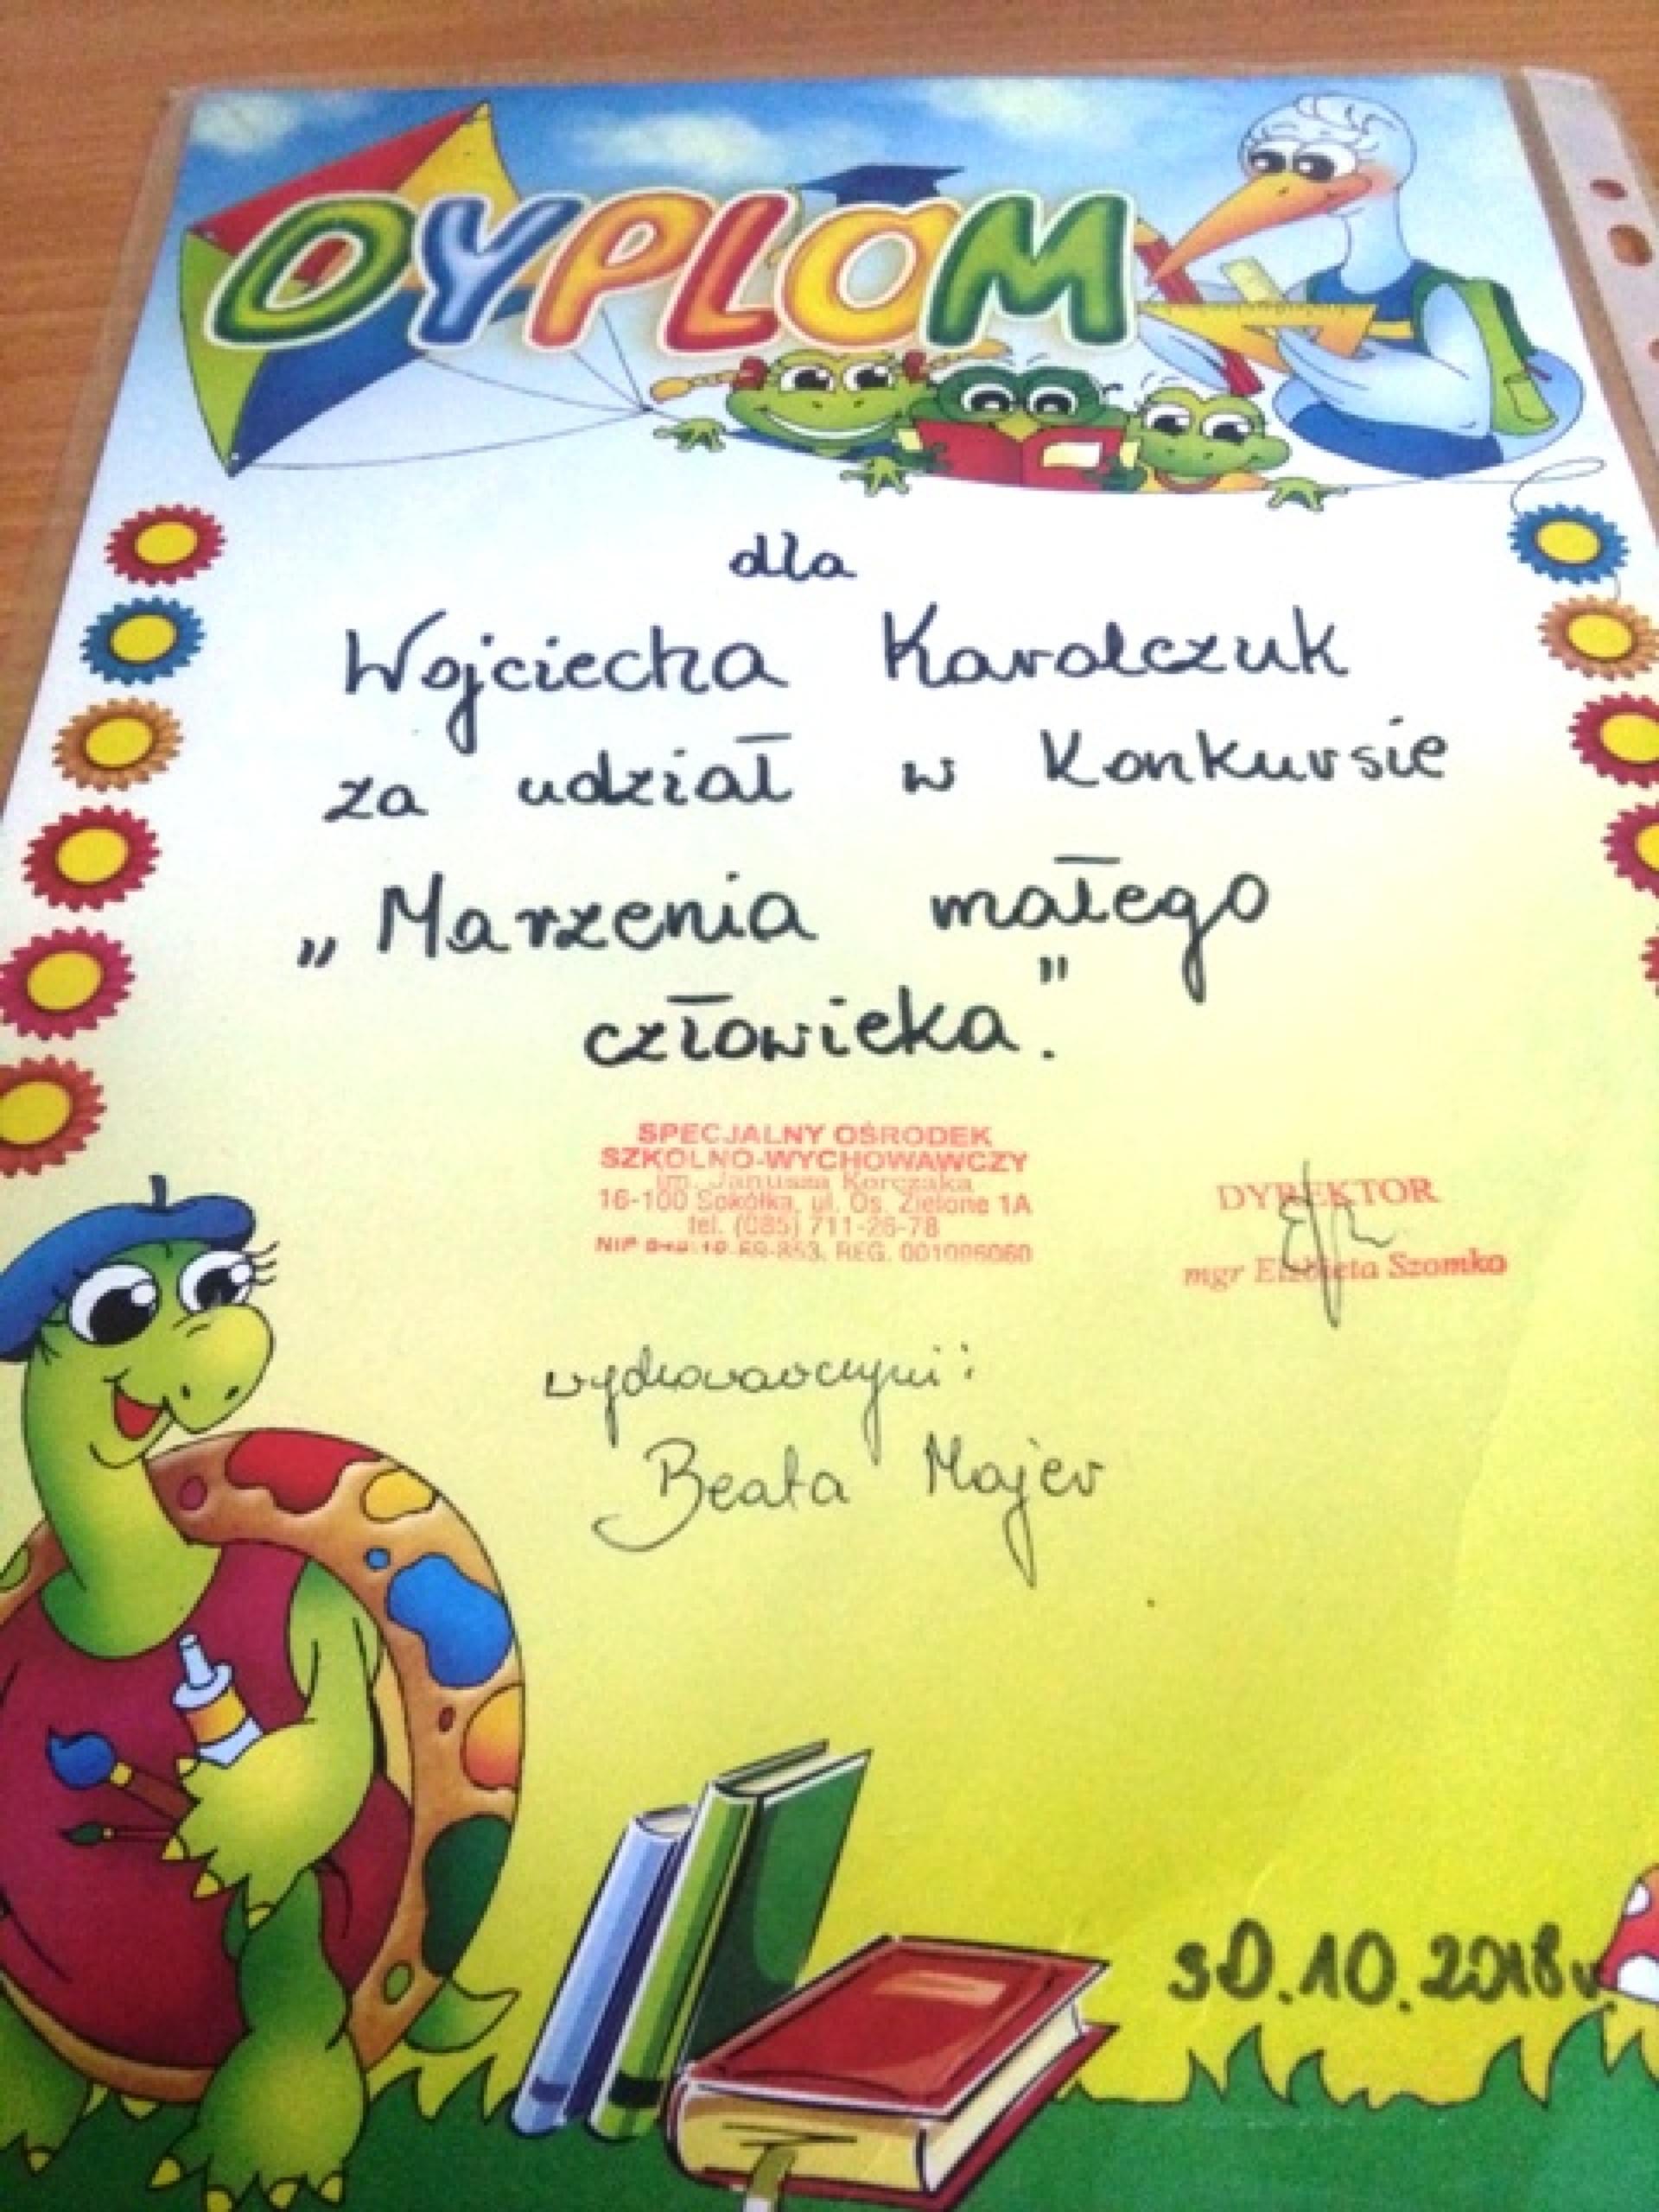 DYPLOM
dla
Wojciecha Karolczuk
za udział w Konkursie
„Marzenia małego
człowieka."
SPECJALNY OŚRODEK
SZKOLNO-WYCHOWAWCZY
im. Janusza Korczaka
16-100 Sokółka, ul. Os. Zielone 1A
tel. (085) 711-26-78
NIP REG. 001096060
DYREKTOR
mgr Elżbieta Szomko
wychowawczyni:
Beata Majer
30.10.2018r.